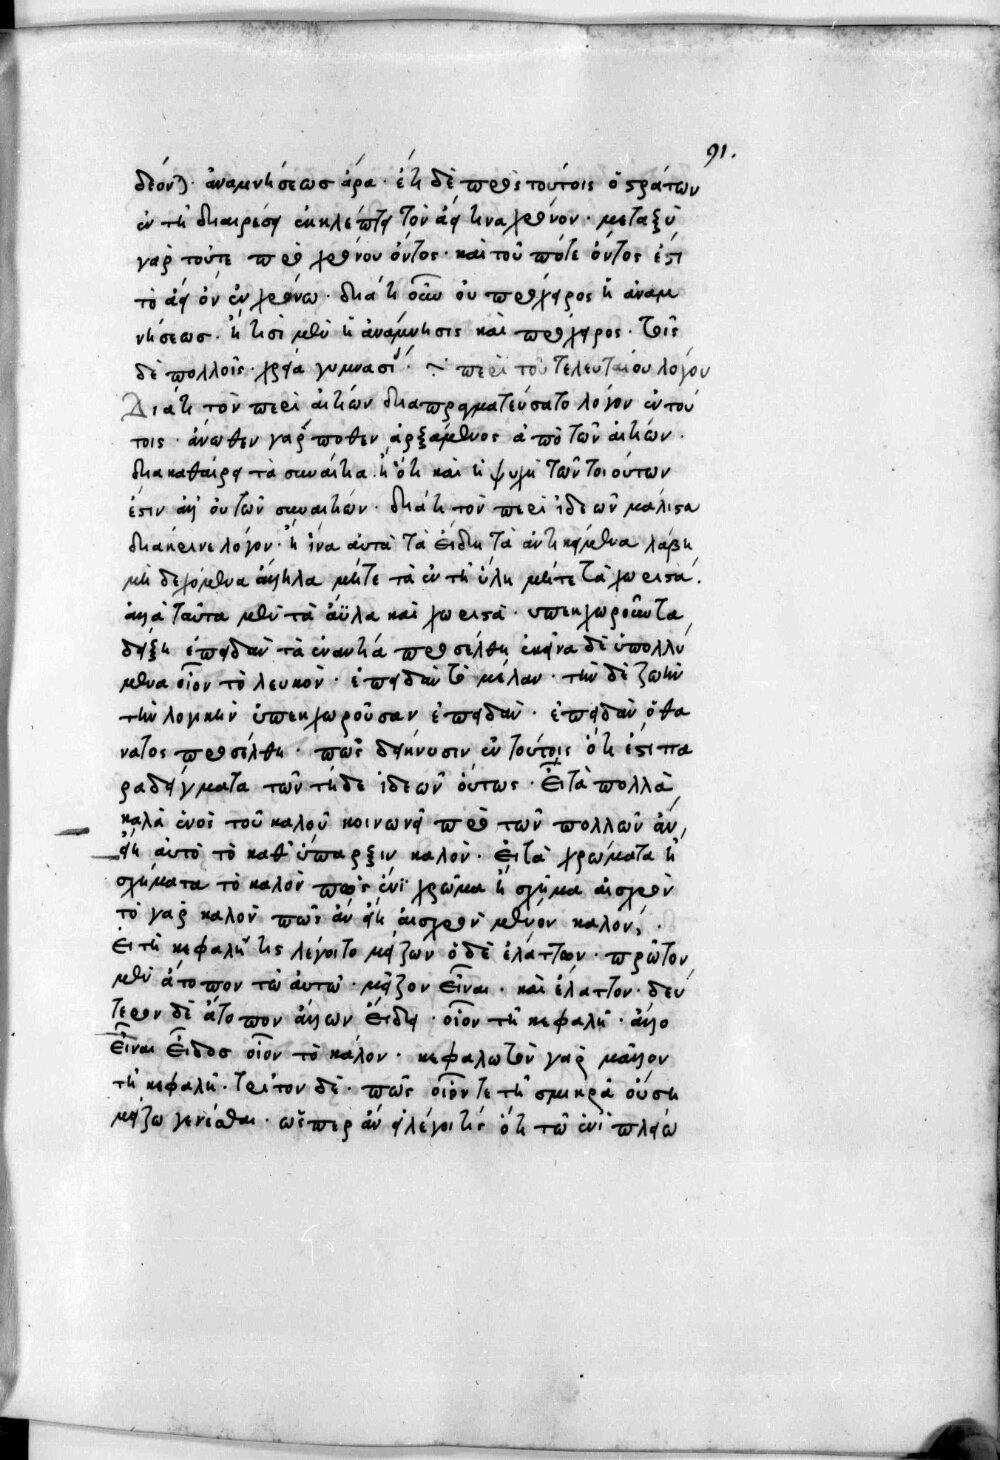 91.
δέονται· ἀναμνήσεως ἄρα· ἔτι δὲ πρὸς τούτοις ὁ στράτων
ἐν τῇ διαιρέσει ἐκκλέπτει τὸν ἀεί τινα χρόνον· μεταξὺ
γὰρ τοῦ τε πρὸ χρόνου ὄντος· καὶ τοῦ πότε ὄντος ἐστι
τὸ ἀεὶ ὂν ἐν χρόνω· διὰ τί οὖν οὐ πρόχειρος ἡ ἀναμ
νήσεως· ἢ τισὶ μὲν ἡ ἀνάμνησις καὶ πρόχειρος· τοῖς
δὲ πολλοῖς· χρεία γυμνασίου· περὶ τοῦ τελευταίου λόγου
Διὰ τί τὸν περὶ αἰτιῶν διαπραγματεύσατο λόγον ἐν τού
τοις· ἄνωθεν γάρ ποθεν ἀρξάμενος ἀπὸ τῶν αἰτιῶν·
διακαθαίρει τὰ συναίτια· ἢ ὅτι καὶ ἡ ψυχὴ τῶν τοιούτων
ἐστιν ἀλλ' οὐ τῶν συναιτιών· διὰ τί τὸν περὶ ἰδεῶν μάλιστα
διακρινε λόγον· ἢ ἵνα αὐτὰ τὰ εἴδη τὰ ἀντικείμενα λάβη
μὴ δεχόμενα ἄλληλα μήτε τὰ ἐν τῇ ὕλη μήτε τὰ χωριστά·
ἀλλὰ ταῦτα μὲν τὰ ἄϋλα καὶ χωριστὰ· υπεκχωροῦντα
δείξη ἐπειδὰν τὰ ἐναντία προσέλθη ἐκεῖνα δὲ ὑπολλύ
μενα οἷον τὸ λευκὸν· ἐπειδὰν τὸ μέλαν· τὴν δὲ ζωὴν
τὴν λογικὴν ὑπεκχωροῦσαν ἐπειδὰν· ἐπειδὰν ὁ θα
νατος προσέλθη· πῶς δείκνυσιν ἐν τούτοις ὅτι ἐστι πα
ραδείγματα τῶν τῇδε ἰδεῶν οὕτως· Εἰ τὰ πολλὰ
καλὰ ἑνὸς τοῦ καλοῦ κοινωνεῖ πρὸ τῶν πολλῶν ἂν
εἴη αὐτὸ τὸ καθ' ὕπαρξιν καλὸν· εἰ τὰ χρώματα ἢ
σχήματα τὸ καλὸν πῶς ἑνὶ χρῶμα ἢ σχῆμα αἰσχρὸν
τὸ γὰρ καλὸν πῶς ἂν εἴη αἰσχρὸν μένον καλὸν·
Εἰ τῇ κεφαλῇ τις λέγοιτο μείζων ὁ δὲ ἐλάττων· πρῶτον
μὲν ἄτοπον τῶ αὐτῶ· μεῖζον εἶναι· καὶ ἔλαττον· δεύ
τερον δὲ ἄτοπον ἄλλων εἴδει· οἷον τῇ κεφαλῇ· ἄλλο
εἶναι εἶδος οἷον τὸ κάλον· κεφαλωτὸν γὰρ μᾶλλον
τῇ κεφαλῇ· τρίτον δὲ· πῶς οἷόν τε τῇ σμικρᾶ οὔση
μείζω γενέσθαι· ὥσπερ ἂν εἰ λέγοι τίς ὅτι τῶ ἑνὶ πλείω